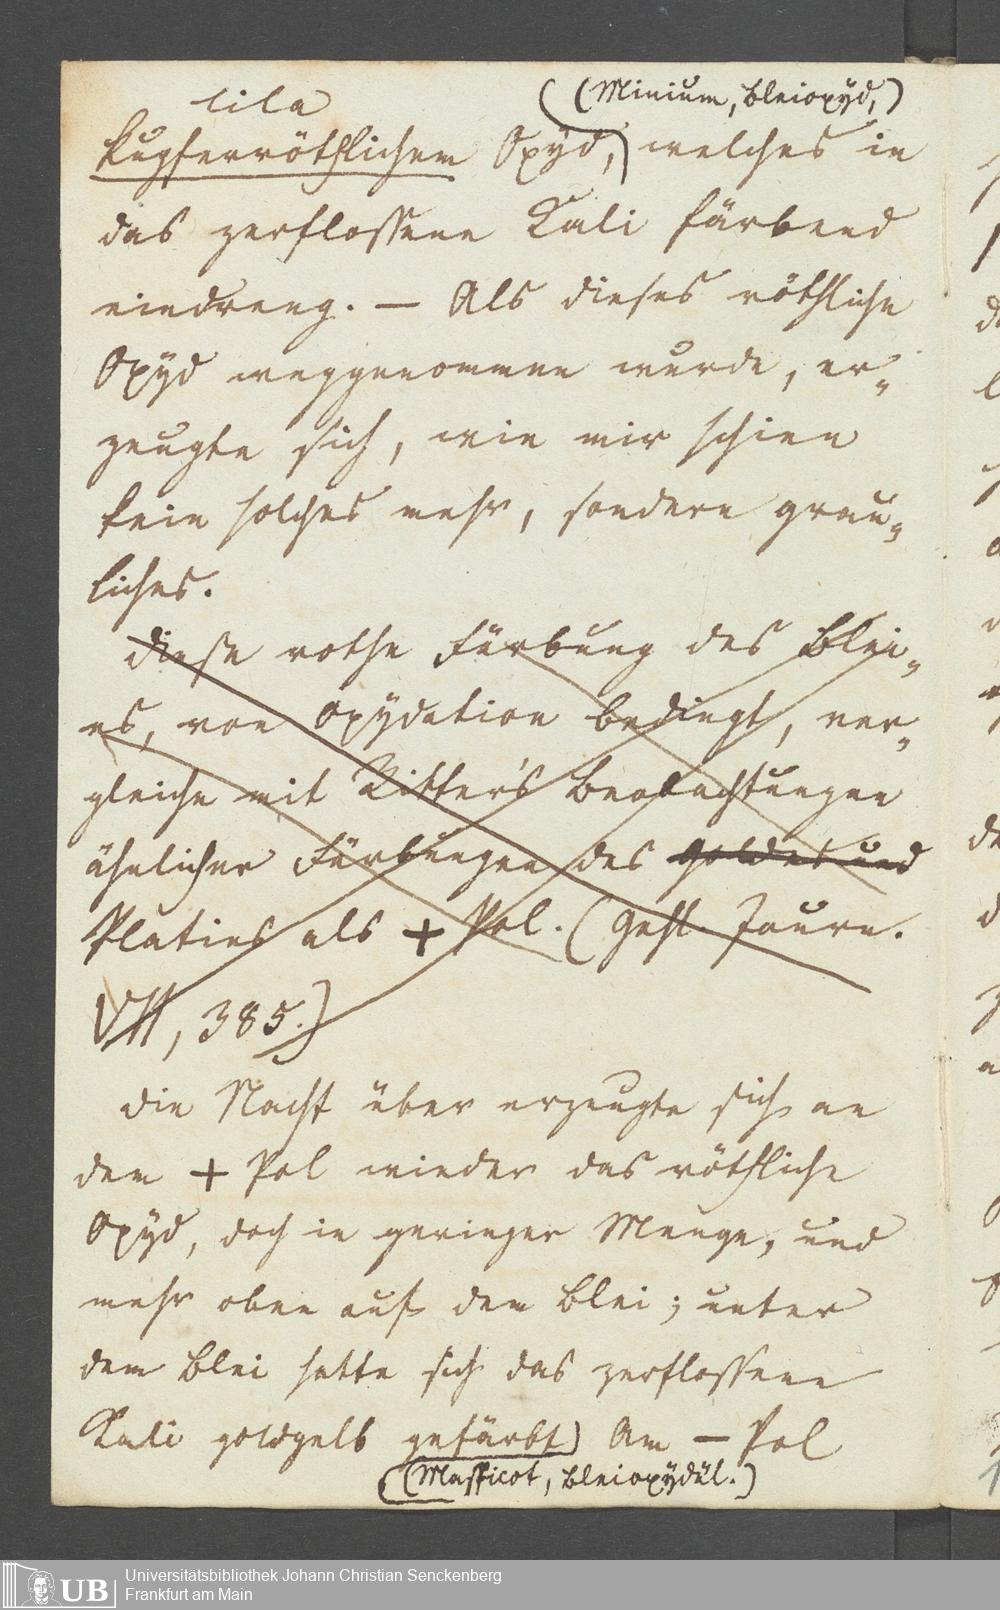 lila
(Minium, Bleioxyd,)
kupferröthlichem Oxyd, welches in
das zerflossene Kali färbend
eindrang. — Als dieses röthliche
Oxyd weggenommen wurde, er-
zeugte sich, wie mir schien
kein solches mehr, sondern grau-
liches.
Diese rothe Färbung des Blei-
es, von Oxydation bedingt, ver-
gleiche mit Ritter's Beobachtungen
ähnlicher Färbungen des Goldes und
Platins als + Pol. (Gehl. Journ.
VII, 385.)
Die Nacht über erzeugte sich an
dem + Pol wieder das röthliche
Oxyd, doch in geringer Menge, und
mehr oben auf dem Blei; unter
dem Blei hatte sich das zerflossene
Kali goldgelb gefärbt) Am — Pol
(Massicot, Bleioxydül.)
UB
Universitätsbibliothek Johann Christian Senckenberg
Frankfurt am Main